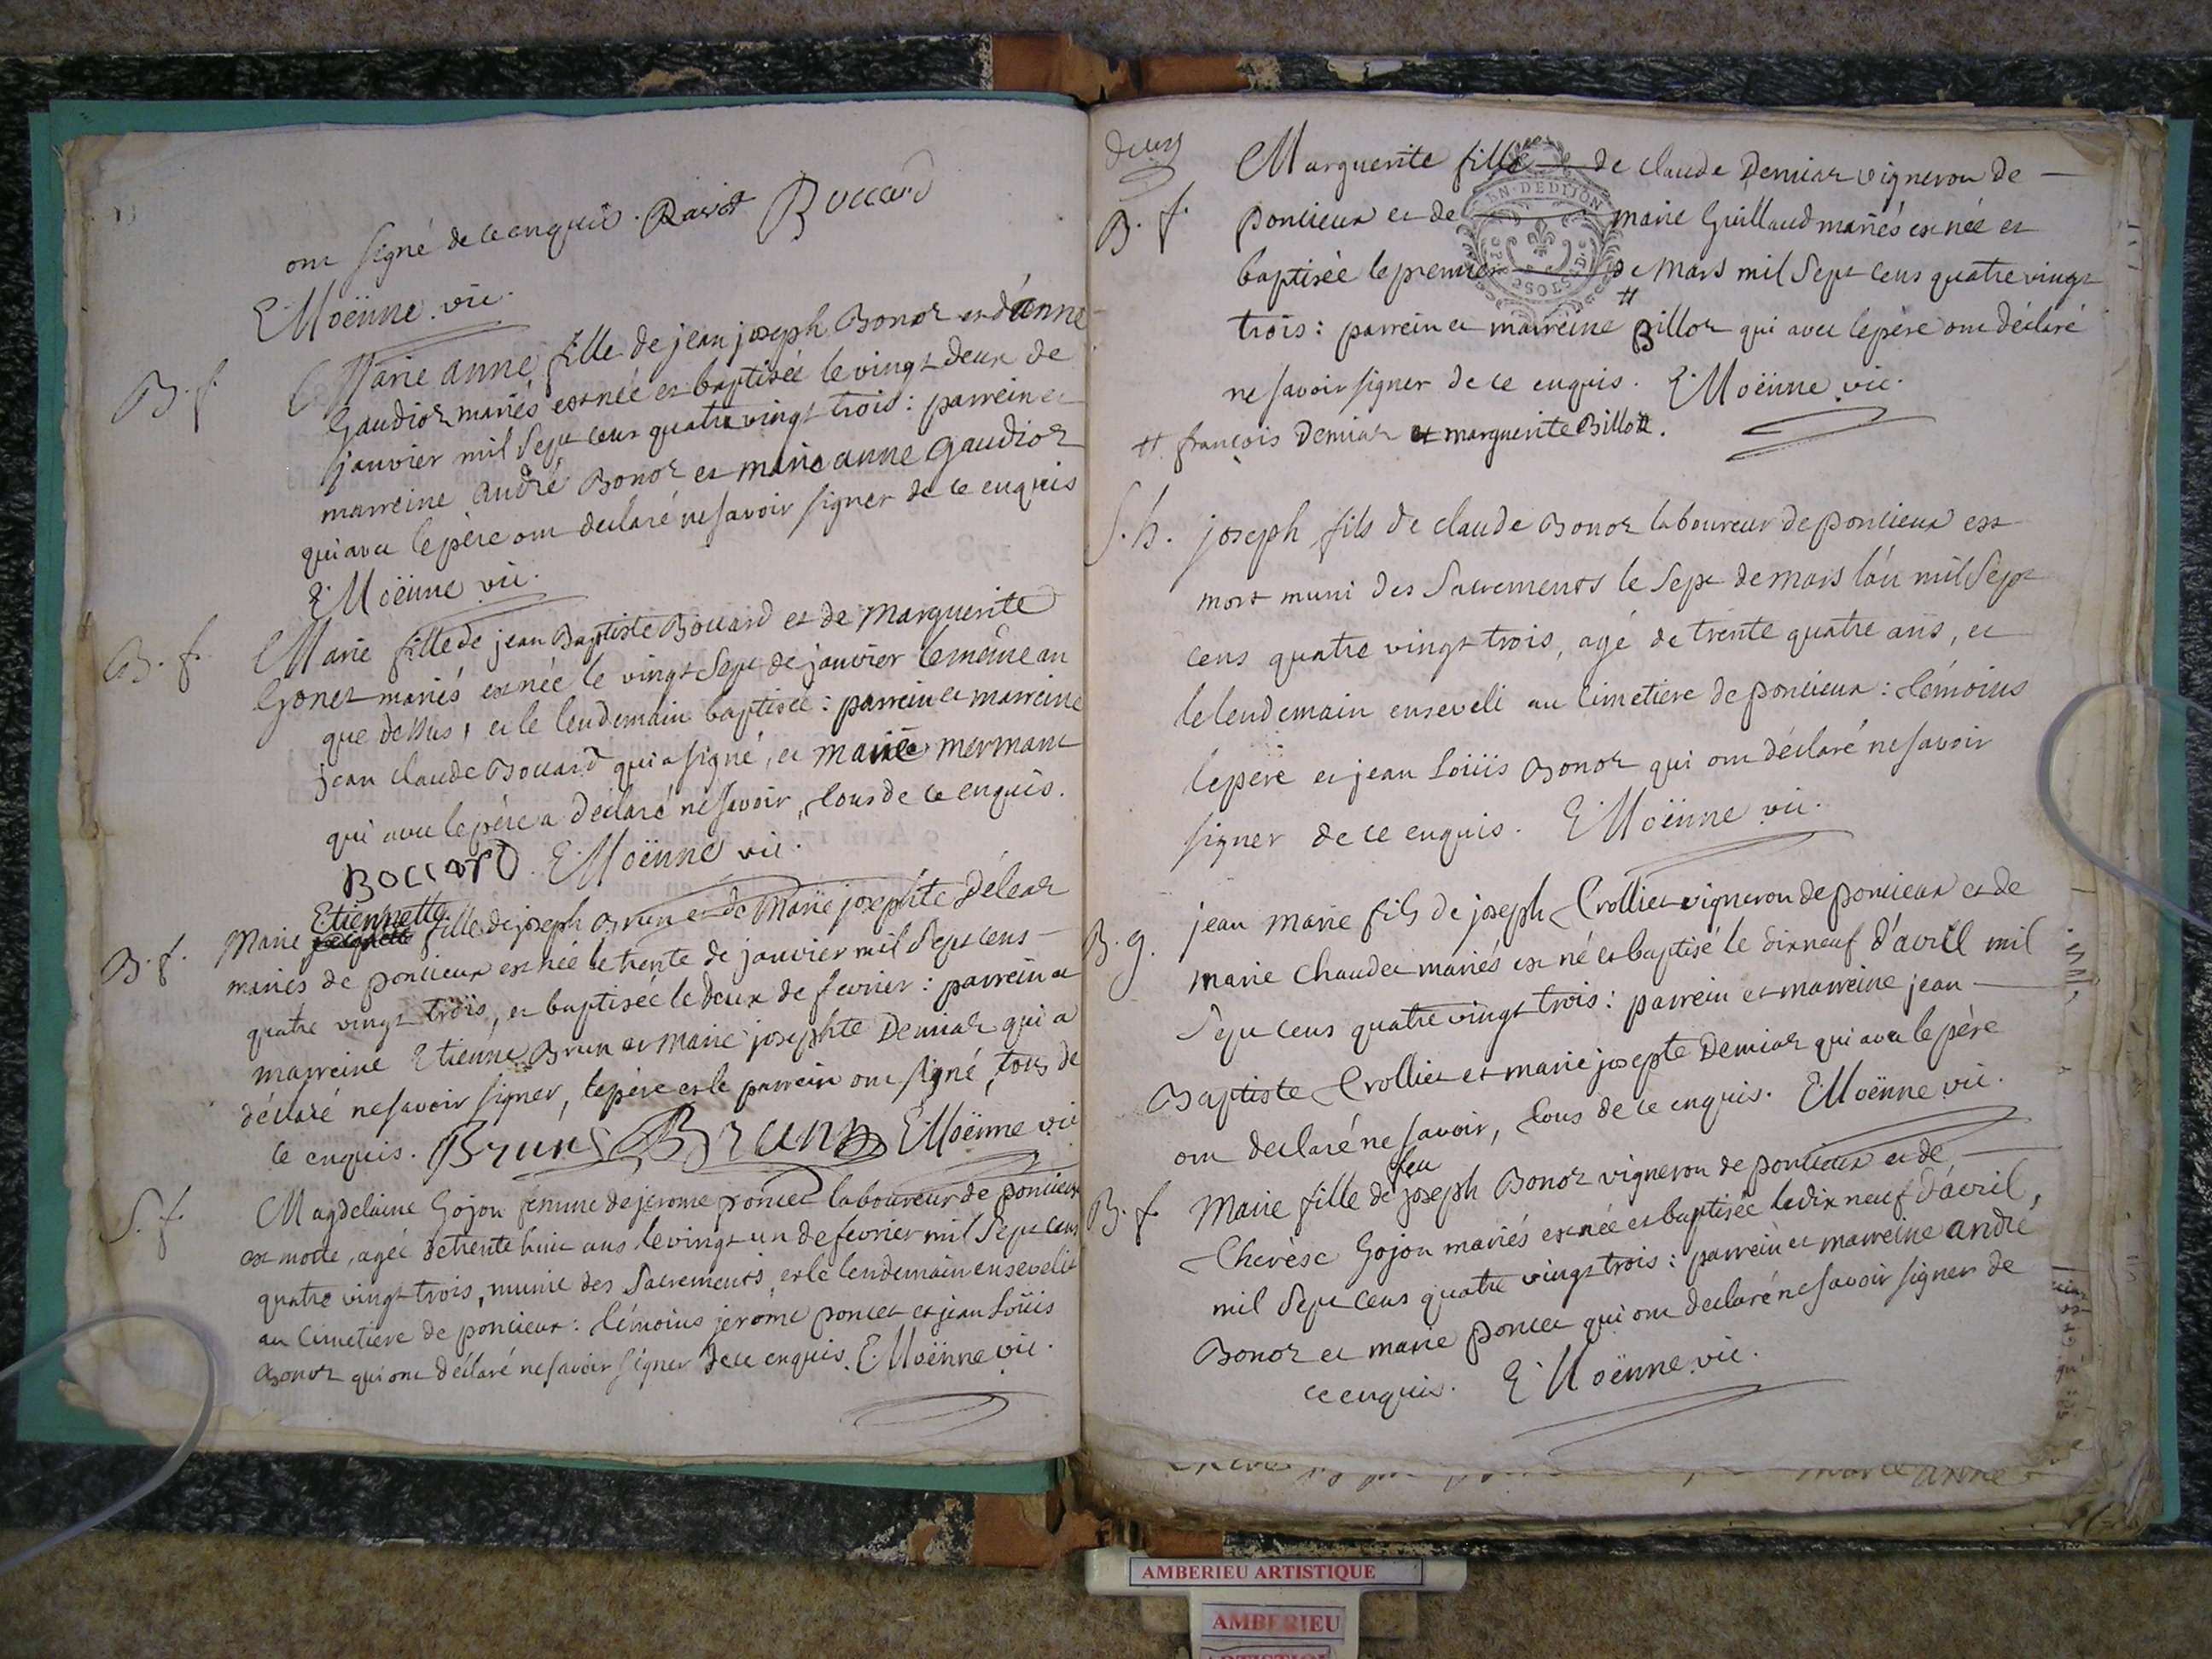 ont signé de ce enquis. Ravot Boccard
E Moënne vic.
B. f.
Marie anne fille de jean joseph Bonoz et d'anne
Gaudioz mariés est née et baptisée le vingt deux de
janvier mil sept cens quatre vingt trois : parrein et
marreine André Bonoz et marie anne Gaudioz
qui avec le père ont declaré ne savoir signer de ce enquis
E Moënne vic.
B. f.
Marie fille de jean Baptiste Boccard et de Marguerite
Gonet mariés est née le vingt sept de janvier le même an
que dessus, et le lendemain baptisée : parrein et marreine
jean claude Boccard qui a signé, et marie mermant
qui avec le père a déclaré ne savoir, tous de ce enquis.
BOCCARD E Moënne vic.
B. f.
Etiennette
Marie fille de joseph Brun et de Marie josephte Déléaz
mariés de poncieux est née le trente de janvier mil sept cens
quatre vingt trois, et baptisée le deux de fevrier : parrein et
marreine Etiénne Brun et marie josephte Demiaz qui a
déclaré ne savoir signer, le père et le parrein ont signé, tous de
ce enquis. Brun Brun E Moënne vic
S. f.
Magdelaine Gojon femme de jerome poncet laboureur de poncieux
est morte, agée de trente huit ans le vingt un de fevrier mil sept cens
quatre vingt trois, munie des Sacrements, et le lendemain ensevelie
au Cimetiere de poncieux : témoins jerôme poncet et jean Loüis
Bonoz qui ont déclaré ne savoir signer de ce enquis. E Moënne vic.
deux
B. f.
Marguerite fille de claude Demiaz vigneron de
poncieux et de marie Guillaud mariés est née et
baptisée le premier de mars mil sept cens quatre vingt
trois : parrein et marreine # Billot qui avec le père ont déclaré
ne savoir signer de ce enquis. E Moënne vic.
# françois Demiaz et marguerite Billot.
S. h.
joseph fils de claude Bonoz laboureur de poncieux est
mort muni des Sacrements le sept de mars l'an mil sept
cens quatre vingt trois, agé de trente quatre ans, et
le lendemain enseveli au Cimetiere de poncieux : témoins
le père et jean Loüis Bonoz qui ont déclaré ne savoir
signer de ce enquis. E Moënne vic.
B. g.
jean marie fils de joseph Crolliet vigneron de poncieux et de
marie Chaudet mariés est né et baptisé le dix neuf d'avril mil
sept cens quatre vingt trois : parrein et marreine jean
Baptiste Crolliet et marie josepte Demiaz qui avec le père
ont declaré ne savoir, tous de ce enquis. E Moënne vic.
B. f.
feu
Marie fille de joseph Bonoz vigneron de poncieux et de
Therèse Gojon mariés est née et baptisée le dix neuf d'avril,
mil sept cens quatre vingt trois : parrein et marreine andré
Bonoz et marie poncet qui ont declaré ne savoir signer de
ce enquis. E Moënne vic.
marie anne
AMBERIEU ARTISTIQUE
AMBERIEU
ARTISTIQUE